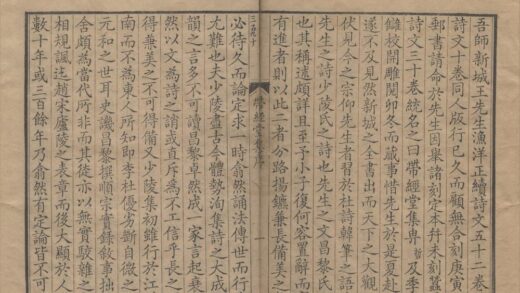 吾師新城王先生漁洋正續詩文五十二卷
詩文十卷同人版行已久而顧無合刻庚寅
郵書請命於先生因舉諸刻定本幷未刻蠶
詩文三十卷統名之曰帶經堂集畀哲及季
讎校開雕閱卯冬而蕆事惜先生於是夏赴
遂不及見然新城之全書出而天下之大觀
伏見今之宗仰先生者習於杜詩韓筆之語
先生之詩少陵氏之詩也先生之文昌黎氏
也其稱述頗詳且至予小子復何容置辭而
有進者則以此二者分路揚鑣兼長備美之
帶經堂集序
一
必待久而論定求一時翕然誦法傳世而行
尤難也夫少陵盡古人體勢洵集詩之大成
韻之言多不可讀昌黎卓然成一家言起衰
然以文為詩之誚或直斥為不工信乎長之
得兼美之不可得備又少陵集初雖行於江
南而不為東人所知即李杜優劣斷自微之
元和之世耳史譏昌黎撰順宗實錄敘事拙
舍頗為當代所非而其徒亦以無實駮雜之
相規諷迄趙宋廬陵之表章而後大顯於人
數十年或三百餘年乃翕然有定論皆不可